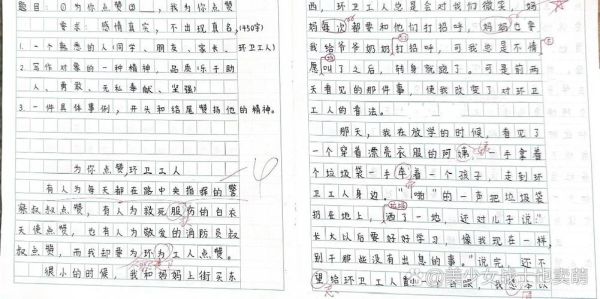 题目：①为你点赞②____，我为你点赞
要求：感情真实，不出现真名，(450字)
1.一个熟悉的人(同学、朋友、家长、环卫工人)
2.写作对象的一种精神，品质(乐于助
人、勇敢、无私奉献、坚强)
3.一件具体事例，开头和结尾赞扬他的精神。
为你点赞环卫工人
有人为每天都在路中央指挥的警
察叔叔点赞，有人为救死服伤的白衣
天使点赞，也有人为敬爱的消防员叔
叔点赞，而我却要为环为工人点赞。
很小的时候，我和妈妈上街买东
西，环卫工人总是会对我们微笑，妈
妈每次都要和他们打招呼，妈妈也要
我给爷爷奶奶打招呼，可我总是不情
愿叫了之后，转身就跑了。可是前两
天看见的那件事，使我改变了对环卫
工人的看法。
那天，我在放学的时候，看见了
一个穿着漂亮衣服的阿姨，一手拿着
个垃圾袋一手牵着一个孩子，走到环
卫工人身边，"啪"的一声把垃圾袋
扔在地上，垃圾洒了一地，还对儿子说"
长大以后要好好学习，像我现在一样，
别干那些没有出息的事。"说完，还不
望给环卫工人